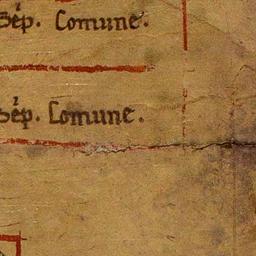 Sep. Comune.
Sep. Comune.